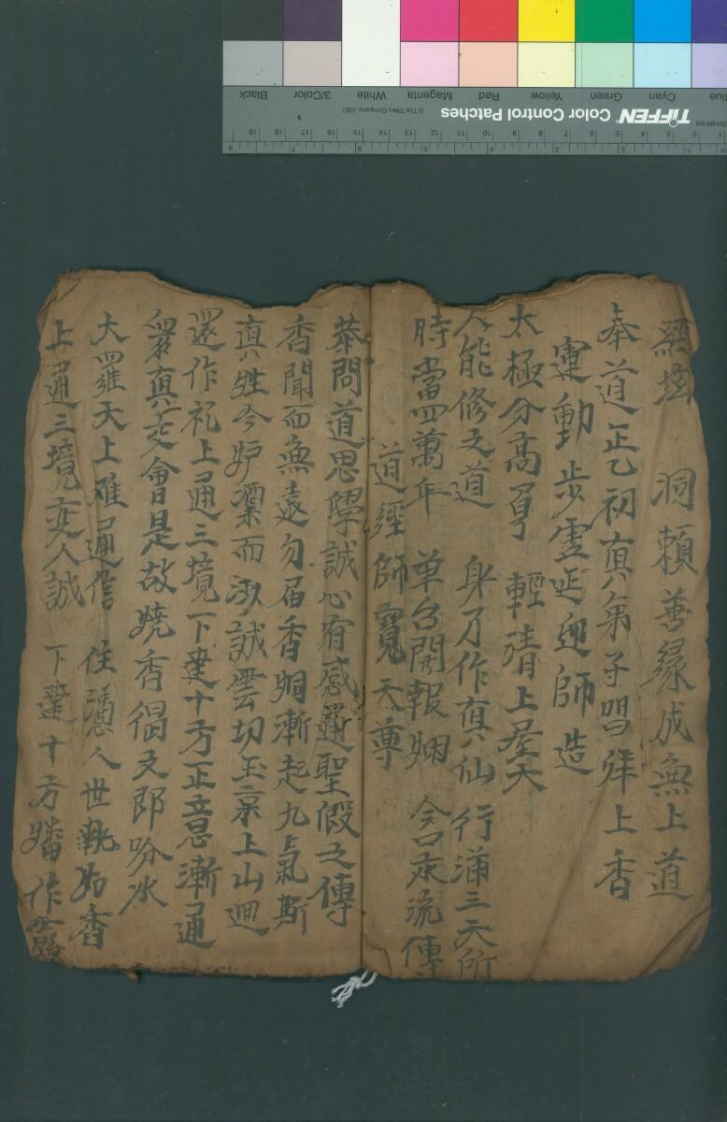 洞賴善緣成無上道
奉道正乙初真弟子唱拜上香
運動步虛迎師造
太極分高厚 輕清上屋天
人能修之道 身乃作真仙 行滿三天所
時當四萬年 單台開報烟 含灰流傳
道經師寳天尊
恭問道思學誠心宥感通聖假之傳
香聞而無遠勿届香烟漸起九氣斯
真姓今炉凛而汝誠雲切玉京上山迴
還作礼上通三境下達十方正意漸通
衆真交會是故燒香偈文郎吟水
大羅天上难通信 住憑人世執如香
上通三境交人誠 下達十方
Black
3/Color
White
Magenta
Red
Yellow
Green
Cyan
Blue
TIFFEN Color Control Patches
© The Tiffen Company, 2007